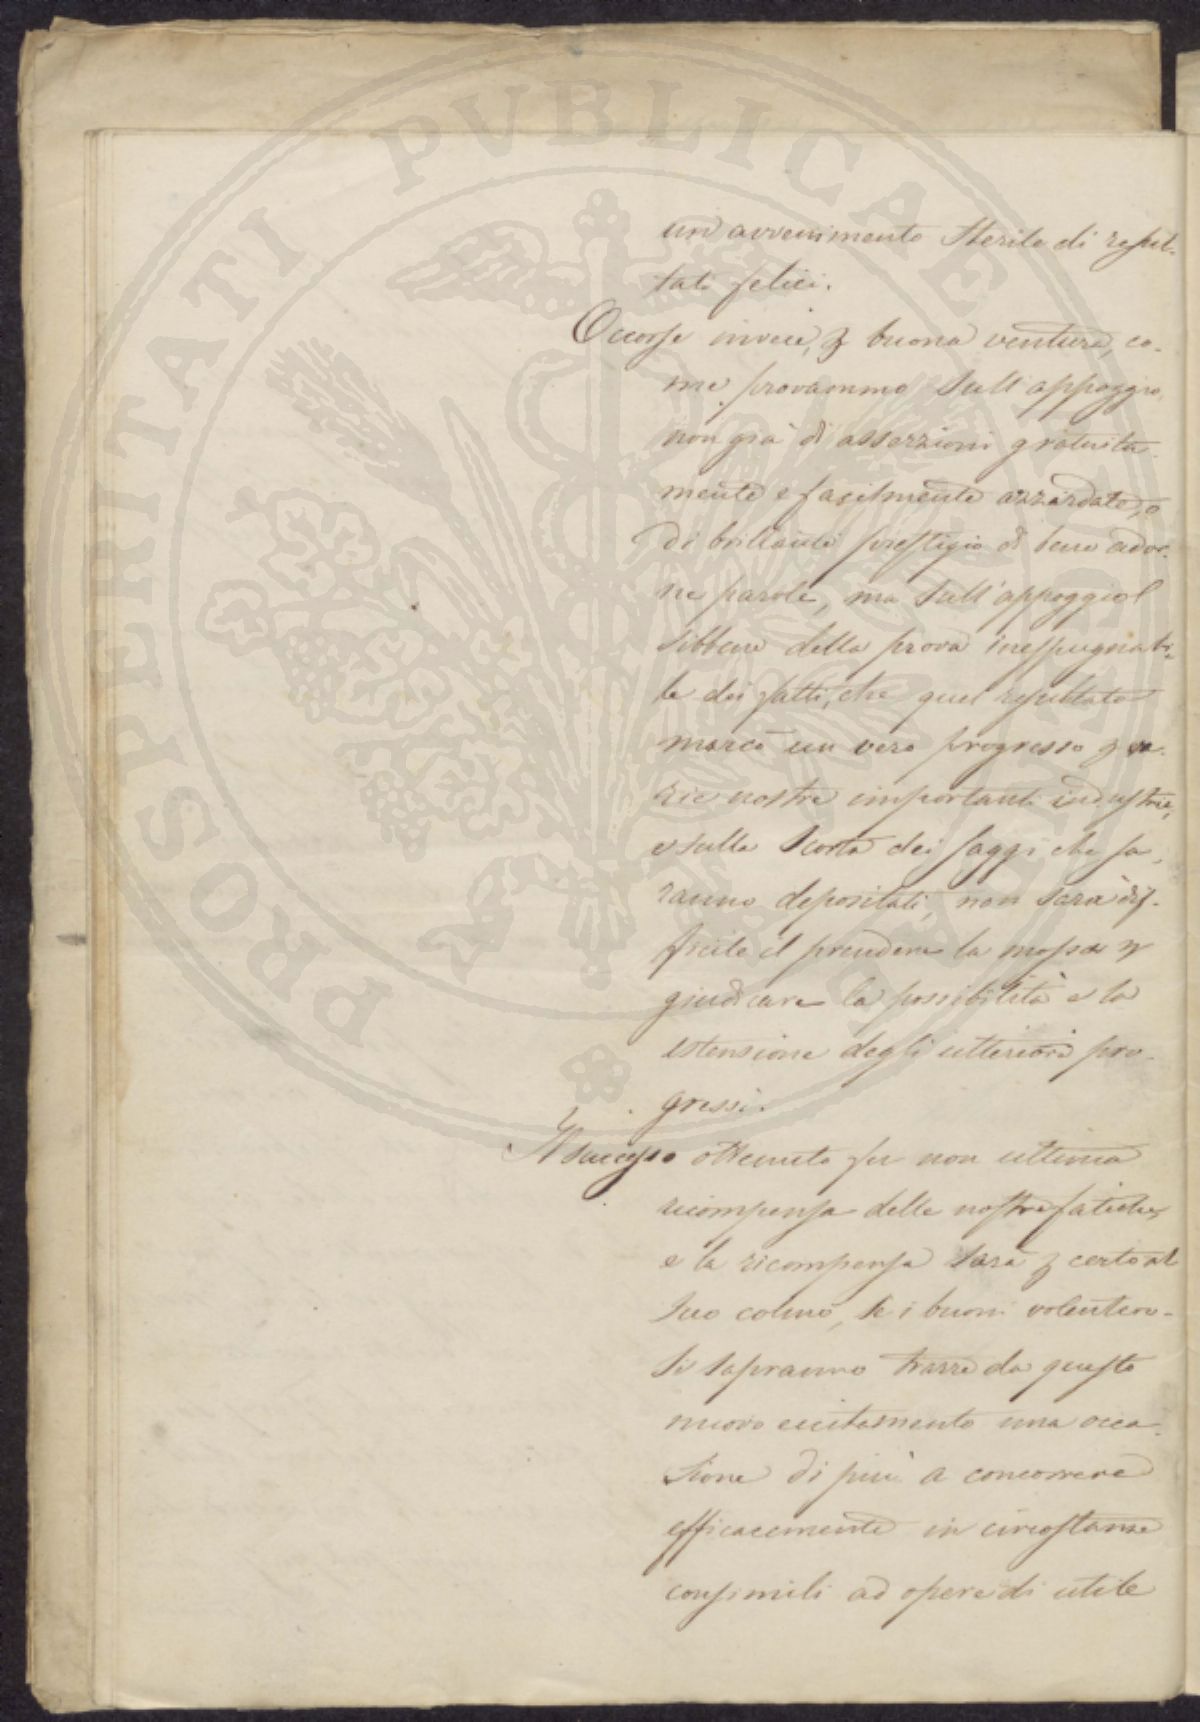 PROSPERITATI PVBLICAE
un avvenimento sterile di resul-
tati felici.
Occorse invece, p buona ventura, co-
me provammo sull'appoggio,
non già di asserzioni gratuita-
mente e facilmente azzardate, o
di brillante prestigio di bene ador-
ne parole, ma sull'appoggio
sibbene della prova inespugnabi-
le dei fatti, che quel resultato
marcò un vero progresso p va-
rie nostre importanti industrie,
e sulla scorta dei saggi che sa-
ranno depositati, non sarà dif-
ficile il prendere la mossa p
giudicare la possibilità e la
estensione degli ulteriori pro-
gressi.
Il successo ottenuto fu non ultima
ricompensa delle nostre fatiche,
e la ricompensa sarà p certo al
suo colmo, se i buoni volentero-
si sapranno trarre da questo
nuovo eccitamento una occa-
sione di più a concorrere
efficacemente in circostanze
consimili ad opere di utile